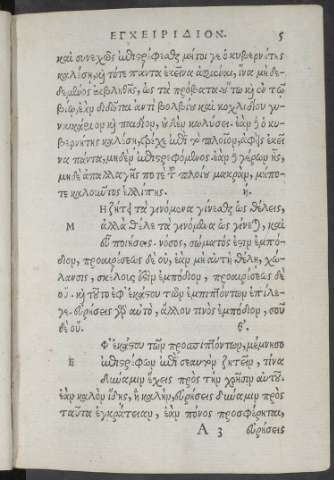 ΕΓΧΕΙΡΙΔΙΟΝ. 5
καὶ συνεχῶς ἐπιστρέφεσθαι μήτοι γε ὁ κυβερνήτης
καλέσῃ, καὶ τότε πάντα ἐκεῖνα ἀφιέναι, ἵνα μὴ δε-
δεμένος ἐμβληθῇς, ὡς τὰ πρόβατα. οὕτω καὶ ἐν τῷ
βίῳ, ἐὰν διδῶται ἀντὶ βολβίου καὶ κοχλιδίου γυ-
ναικάριον καὶ παιδίον, οὐδὲν κωλύσει. ἐὰν δὲ ὁ κυ-
βερνήτης καλέσῃ, τρέχε ἐπὶ τὸ πλοῖον, ἀφεὶς ἐκεῖ-
να πάντα, μηδὲν ἐπιστρεφόμενος. ἐὰν δὲ γέρων ᾖς,
μηδὲ ἀπαλλαγῇς ποτὲ τοῦ πλοίου μακράν, μήπο-
τε καλοῦντος ἐλλίπῃς. η.
Η ζήτει τὰ γινόμενα γίνεσθαι ὡς θέλεις,
Μ ἀλλὰ θέλε τὰ γινόμενα ὡς γίνεται, καὶ
εὖ ποιήσεις. νόσος, σώματός ἐστιν ἐμπό-
διον, προαιρέσεως δὲ οὔ, ἐὰν μὴ αὐτὴ θέλῃ, χώ-
λανσις, σκέλους ἐστὶν ἐμπόδιον, προαιρέσεως δὲ
οὔ. καὶ τοῦτο ἐφ' ἑκάστου τῶν ἐμπιπτόντων ἐπίλε-
γε. εὑρήσεις γὰρ αὐτὸ, ἄλλου τινὸς ἐμπόδιον, σοῦ
δὲ οὔ. θ.
Φ' ἑκάστου τῶν προσπιπτόντων, μέμνησο
Ε ἐπιστρέφων ἐπὶ σεαυτὸν ζητεῖν, τίνα
δύναμιν ἔχεις πρὸς τὴν χρῆσιν αὐτοῦ.
ἐὰν καλὸν ἴδῃς, ἢ καλὴν, εὑρήσεις δύναμιν πρὸς
ταῦτα ἐγκράτειαν, ἐὰν πόνος προσφέρηται,
Α 3 εὑρήσεις